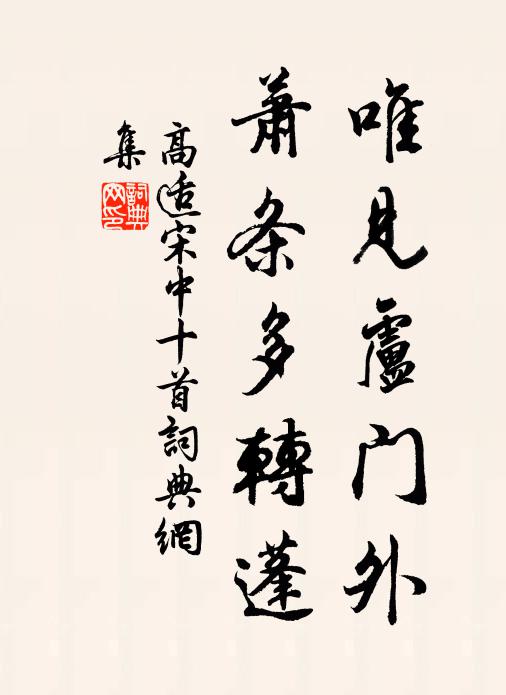 唯见盧门外
蕭条多轉蓬
高适宋中十首詞典網
集
詞典網印